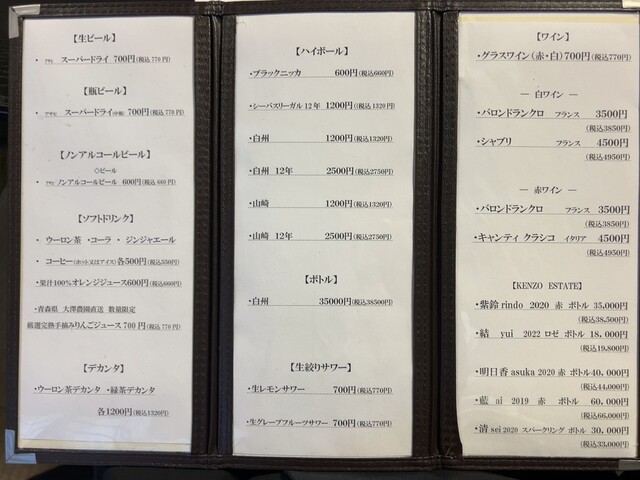 【生ビール】
・アサヒ スーパードライ 700円(税込770円)
【瓶ビール】
・アサヒ スーパードライ(中瓶) 700円(税込770円)
【ノンアルコールビール】
◇ビール
・アサヒ ノンアルコールビール 600円(税込660円)
【ソフトドリンク】
・ウーロン茶 ・コーラ ・ ジンジャエール
・コーヒー(ホット又はアイス)各500円(税込550円)
・果汁100%オレンジジュース600円(税込660円)
・青森県 大澤農園直送 数量限定
厳選完熟手摘みりんごジュース700円(税込770円)
【デカンタ】
・ウーロン茶デカンタ ・緑茶デカンタ
各1200円(税込1320円)
【ハイボール】
・ブラックニッカ 600円(税込660円)
・シーバスリーガル12年 1200円(税込1320円)
・白州 1200円(税込1320円)
・白州 12年 2500円(税込2750円)
・山崎 1200円(税込1320円)
・山崎 12年 2500円(税込2750円)
【ボトル】
・白州 35000円(税込38500円)
【生絞りサワー】
・生レモンサワー 700円(税込770円)
・生グレープフルーツサワー 700円(税込770円)
【ワイン】
・グラスワイン(赤・白)700円(税込770円)
― 白ワイン ―
・バロンドランクロ フランス 3500円
(税込3850円)
・シャブリ フランス 4500円
(税込4950円)
― 赤ワイン ―
・バロンドランクロ フランス 3500円
(税込3850円)
・キャンティ クラシコ イタリア 4500円
(税込4950円)
【KENZO ESTATE】
・紫鈴 rindo 2020 赤 ボトル 35,000円
(税込38,500円)
・結 yui 2022 ロゼ ボトル 18,000円
(税込19,800円)
・明日香 asuka 2020 赤 ボトル 40,000円
(税込44,000円)
・藍 ai 2019 赤 ボトル 60,000円
(税込66,000円)
・清 sei 2020 スパークリング ボトル 30,000円
(税込33,000円)